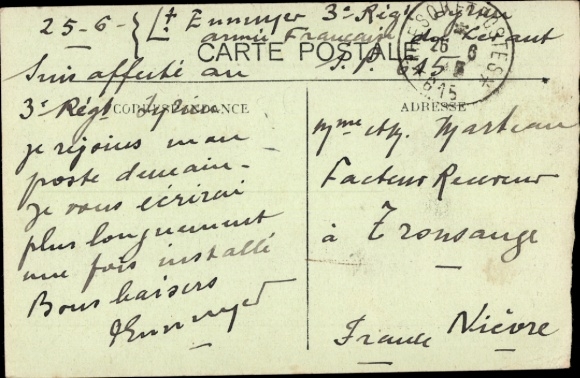 25-6- { Lt Ennuyer 3e Régt Syrien
armée Française du Levant
CARTE POSTALE
S.P. 615
TRESOR ET POSTES
26 6
615
Suis affecté au
3e Régt Syrien
CORRESPONDANCE
je rejoins mon
poste demain -
je vous écrirai
plus longuement
une fois installé
Bons baisers
Ennuyer
ADRESSE
Mme & M. Marteau
Facteur Receveur
à Tronsange
France Nièvre